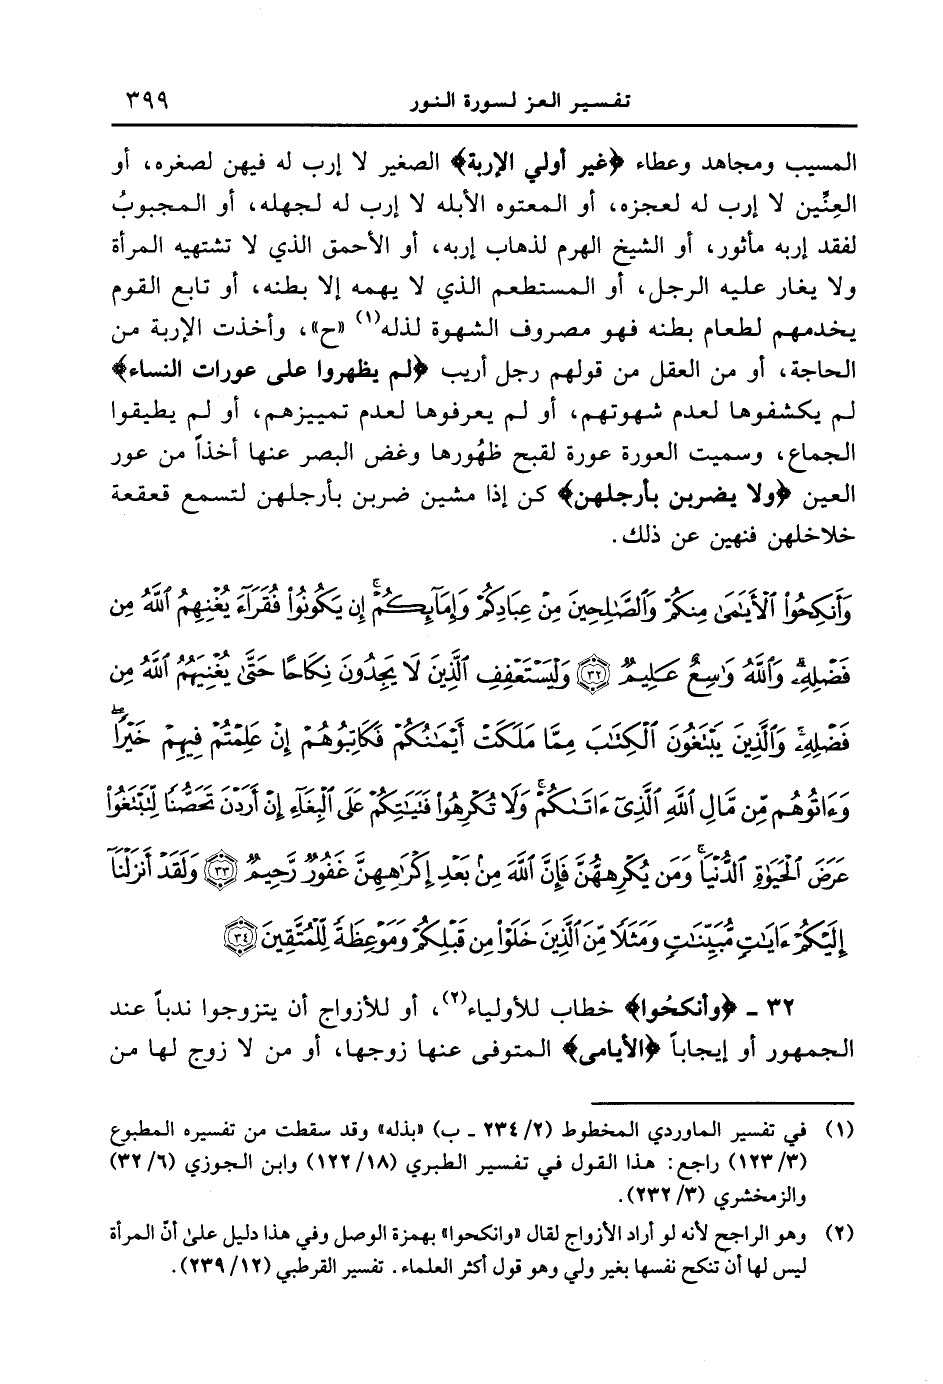 تفسير العز لسورة النور ٣٩٩
المسيب ومجاهد وعطاء ﴿غير أولي الإربة﴾ الصغير لا إرب له فيهن لصغره، أو
العِنِّين لا إرب له لعجزه، أو المعتوه الأبله لا إرب له لجهله، أو المجبوبُ
لفقد إربه مأثور، أو الشيخ الهرم لذهاب إربه، أو الأحمق الذي لا تشتهيه المرأة
ولا يغار عليه الرجل، أو المستطعم الذي لا يهمه إلا بطنه، أو تابع القوم
يخدمهم لطعام بطنه فهو مصروف الشهوة لذله(١) «ح»، وأخذت الإربة من
الحاجة، أو من العقل من قولهم رجل أريب ﴿لم يظهروا على عورات النساء﴾
لم يكشفوها لعدم شهوتهم، أو لم يعرفوها لعدم تمييزهم، أو لم يطيقوا
الجماع، وسميت العورة عورة لقبح ظهُورها وغض البصر عنها أخذاً من عور
العين ﴿ولا يضربن بأرجلهن﴾ كن إذا مشين ضربن بأرجلهن لتسمع قعقعة
خلاخلهن فنهين عن ذلك.
وَأَنكِحُوا۟ ٱلْأَيَـٰمَىٰ مِنكُمْ وَٱلصَّـٰلِحِينَ مِنْ عِبَادِكُمْ وَإِمَآئِكُمْ ۚ إِن يَكُونُوا۟ فُقَرَآءَ يُغْنِهِمُ ٱللَّهُ مِن
فَضْلِهِۦ ۗ وَٱللَّهُ وَٰسِعٌ عَلِيمٌ ٣٢ وَلْيَسْتَعْفِفِ ٱلَّذِينَ لَا يَجِدُونَ نِكَاحًا حَتَّىٰ يُغْنِيَهُمُ ٱللَّهُ مِن
فَضْلِهِۦ ۗ وَٱلَّذِينَ يَبْتَغُونَ ٱلْكِتَـٰبَ مِمَّا مَلَكَتْ أَيْمَـٰنُكُمْ فَكَاتِبُوهُمْ إِنْ عَلِمْتُمْ فِيهِمْ خَيْرًا ۖ
وَءَاتُوهُم مِّن مَّالِ ٱللَّهِ ٱلَّذِىٓ ءَاتَىٰكُمْ ۚ وَلَا تُكْرِهُوا۟ فَتَيَـٰتِكُمْ عَلَى ٱلْبِغَآءِ إِنْ أَرَدْنَ تَحَصُّنًا لِّتَبْتَغُوا۟
عَرَضَ ٱلْحَيَوٰةِ ٱلدُّنْيَا ۚ وَمَن يُكْرِههُّنَّ فَإِنَّ ٱللَّهَ مِنۢ بَعْدِ إِكْرَٰهِهِنَّ غَفُورٌ رَّحِيمٌ ٣٣ وَلَقَدْ أَنزَلْنَآ
إِلَيْكُمْ ءَايَـٰتٍ مُّبَيِّنَـٰتٍ وَمَثَلًا مِّنَ ٱلَّذِينَ خَلَوْا۟ مِن قَبْلِكُمْ وَمَوْعِظَةً لِّلْمُتَّقِينَ ٣٤
٣٢ ـ ﴿وأنكحُوا﴾ خطاب للأولياء(٢)، أو للأزواج أن يتزوجوا ندباً عند
الجمهور أو إيجاباً ﴿الأيامى﴾ المتوفى عنها زوجها، أو من لا زوج لها من
(١) في تفسير الماوردي المخطوط (٢/ ٢٣٤ ـ ب) «بذله» وقد سقطت من تفسيره المطبوع
(٣/ ١٢٣) راجع: هذا القول في تفسير الطبري (١٨/ ١٢٢) وابن الجوزي (٦/ ٣٢)
والزمخشري (٣/ ٢٣٢).
(٢) وهو الراجح لأنه لو أراد الأزواج لقال «وانكحوا» بهمزة الوصل وفي هذا دليل على أنّ المرأة
ليس لها أن تنكح نفسها بغير ولي وهو قول أكثر العلماء. تفسير القرطبي (١٢/ ٢٣٩).